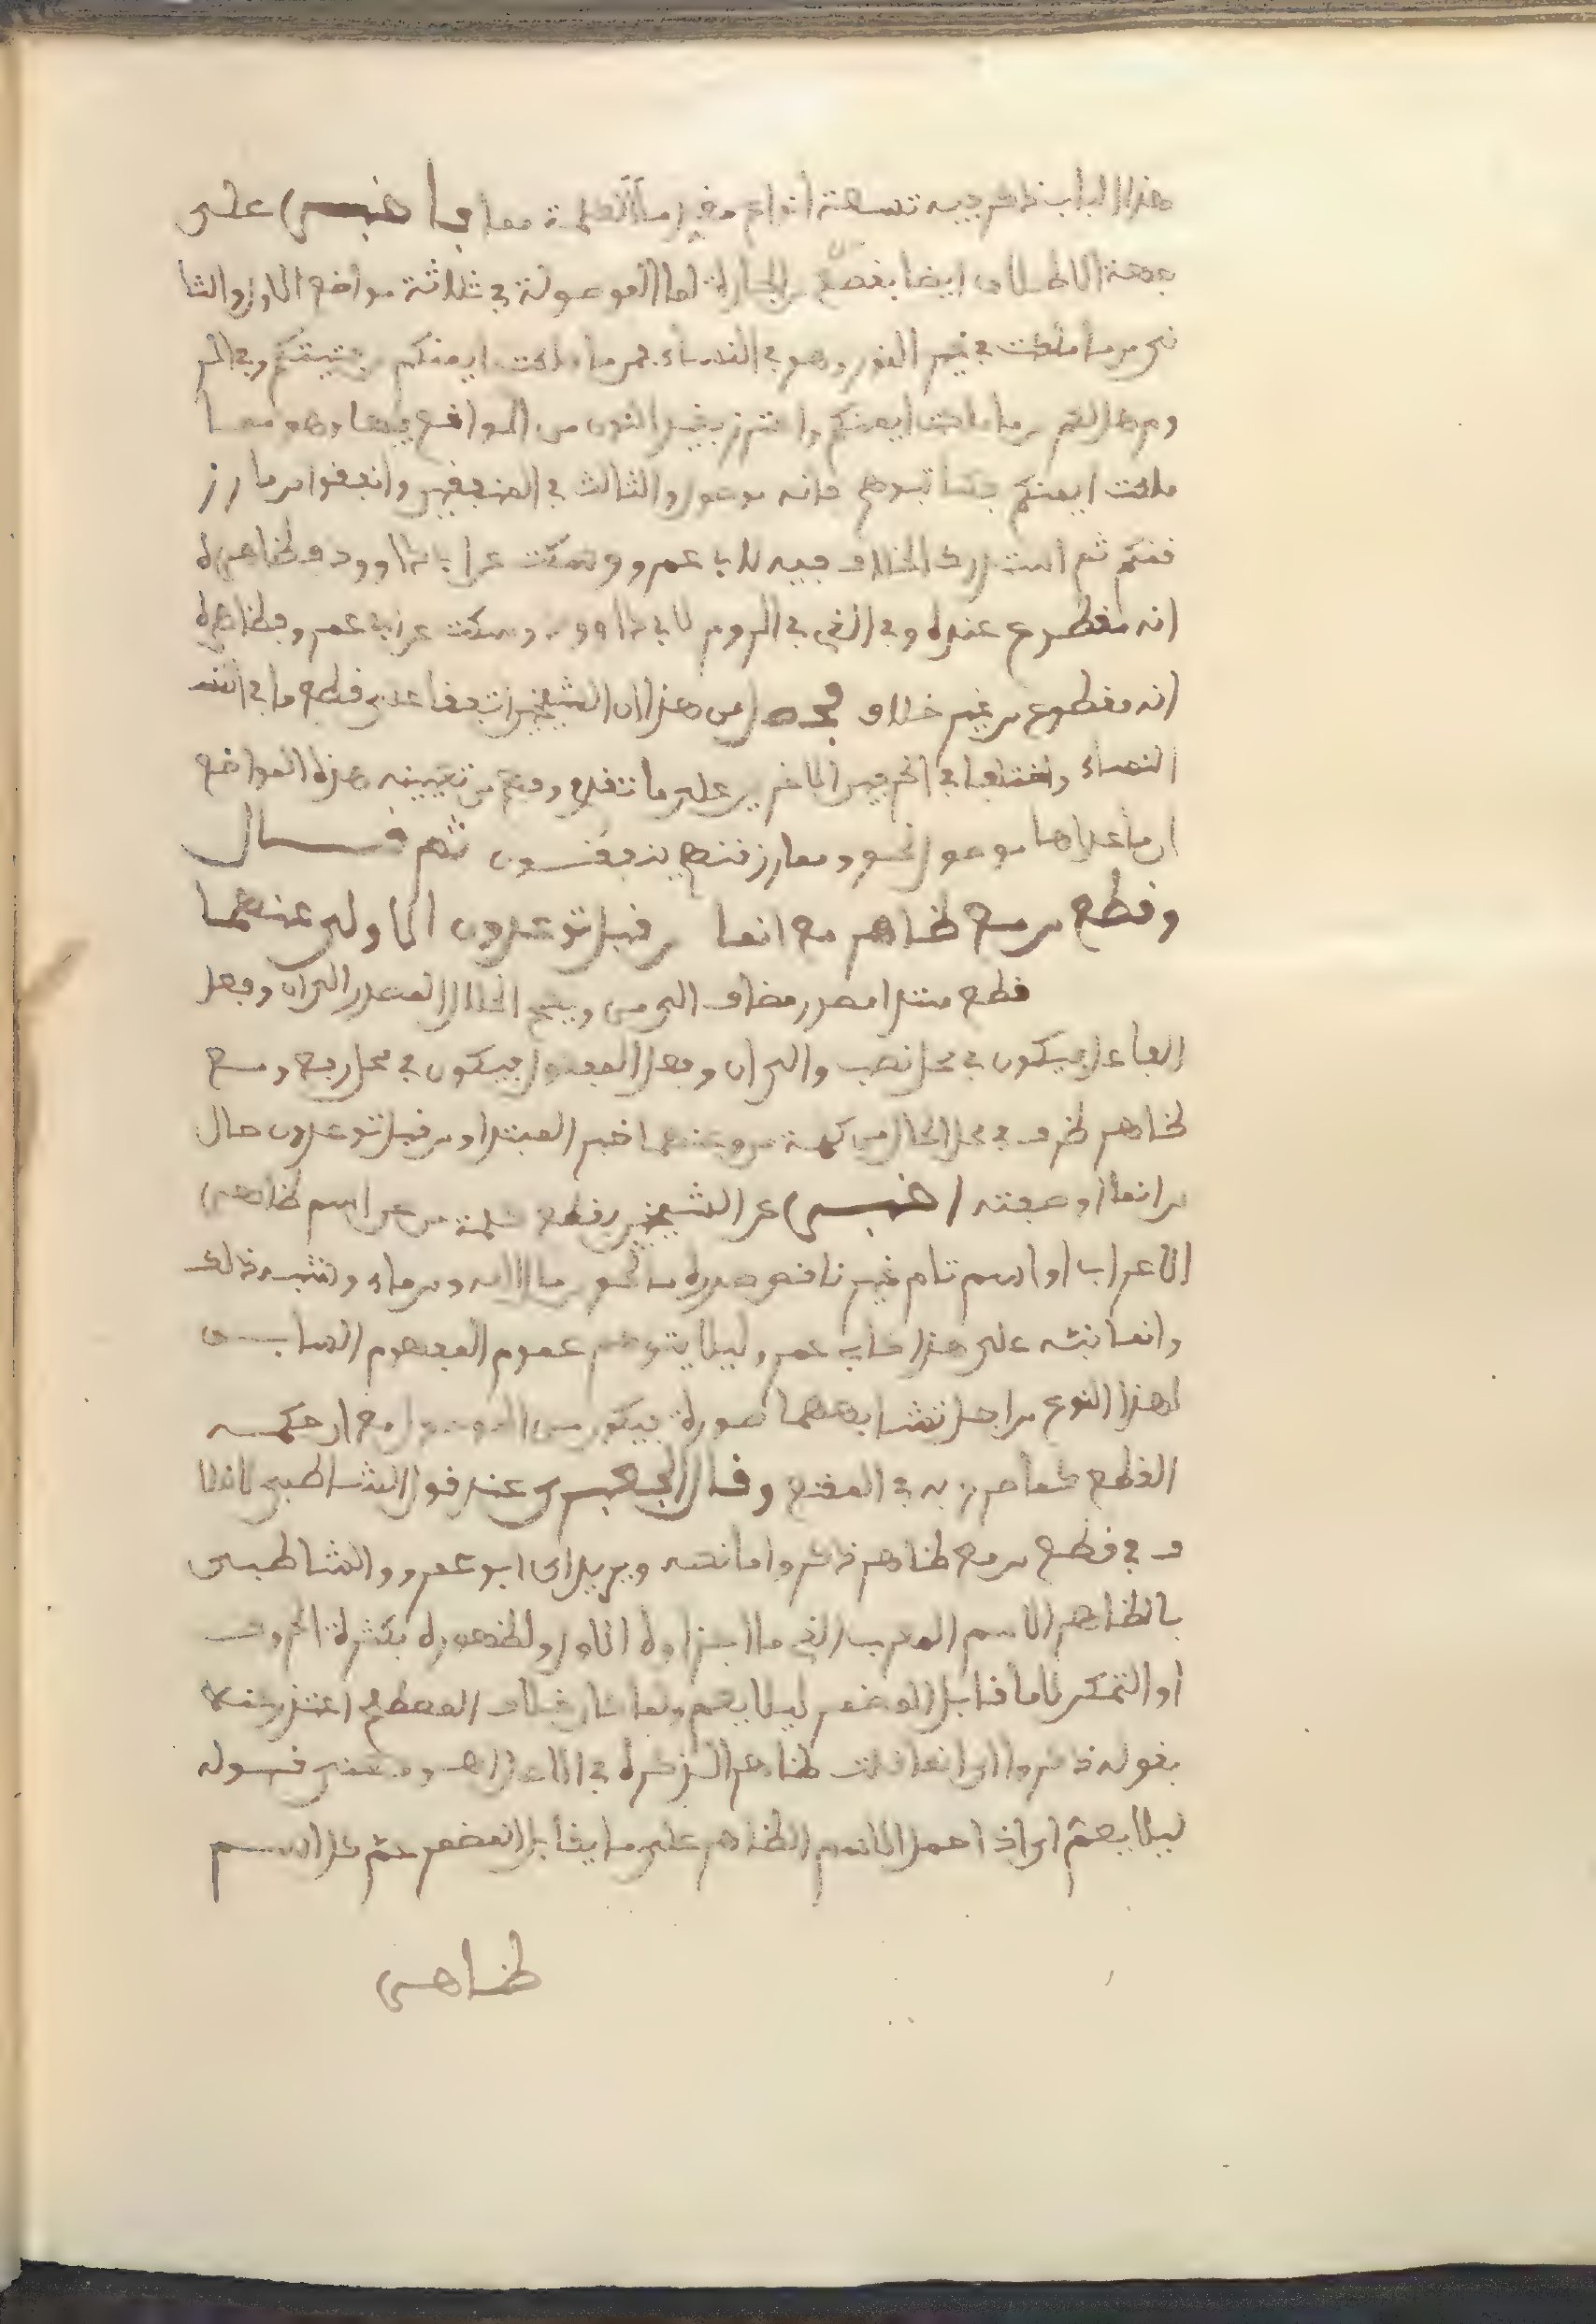 هذا الباب ذكر فيه تسعة انواع مفر ما الكلمة معا فاخبر على
جهة الاطلاق ايضا بفصل من الجارة لما الموصولة في ثلاثة مواضع الاول والثا
نى من ما ملكت في غير النور وهو في النساء فمن ما ملكت ايمنكم من فتيتكم وفي الر
وم هل لكم من ما ملكت ايمنكم واحترز بغير النور من الواقع فيها وهو مما
ملكت ايمنكم فكاتبوهم فانه موصول والثالث في المنفقين وانفقوا من ما رز
قنكم ثم استدرك الخلاف فيه لابى عمرو وسكت عن ابى داوود فظاهره
انه مقطوع عنده وفي الذى في الروم لابى داوود وسكت عن ابى عمرو فظاهره
انه مقطوع من غير خلاف فحصل من هذا ان الشيخين اتفقا على قطع ما في
النساء واختلفا في الحرفين الاخرين على ما تقدم وفهم من تعيينه هذه المواضع
ان ما عداها موصول نحو ومما رزقنهم ينفقون ثم قال
وقطع من مع ظاهر مع انما من قبل توعدون الاولى عنهما
قطع مبتدا مصدر مضاف الى من ويصح انحلال المصدر الى ان وفعل
الفاعل فيكون في محل نصب والى ان وفعل المفعول فيكون في محل رفع ومع
ظاهر ظرف في محل الحال من كلمة من وعنهما خبر المبتدا ومن قبل توعدون حال
من انما او صفته اخبر عن الشيخين بقطع كلمة من عن اسم ظاهر
الاعراب او اسم تام غير ناقص صدره ما نحو من مال الله ومن ماء وشبه ذلك
وانما نبه على هذا كابى عمرو ليلا يتوهم عموم المفهوم السابق
لهذا النوع من اجل تشابههما صورة فيكون من الموصول مع ان حكمه
القطع كما صرح به في المقنع وقال الجعبرى عند قول الشاطبى لاخلا
ف في قطع من مع ظاهر ذكروا ما نصه ويريد اى ابو عمرو والشاطبى
بالظاهر الاسم المعرب الذى ما اجزاوه الاول ولظهوره بكثرة الحروف
او التمكن لا ما قابل المضمر ليلا يعم ولما كان خلاف المصطلح اعتذر عنه
بقوله ذكروا اى انما قلت ظاهر لذكره في الاصل اهـ ومعنى قوله
ليلا يعم اى اذ احمل الاسم الظاهر على ما يقابل المضمر عم كل اسم
ظاهر